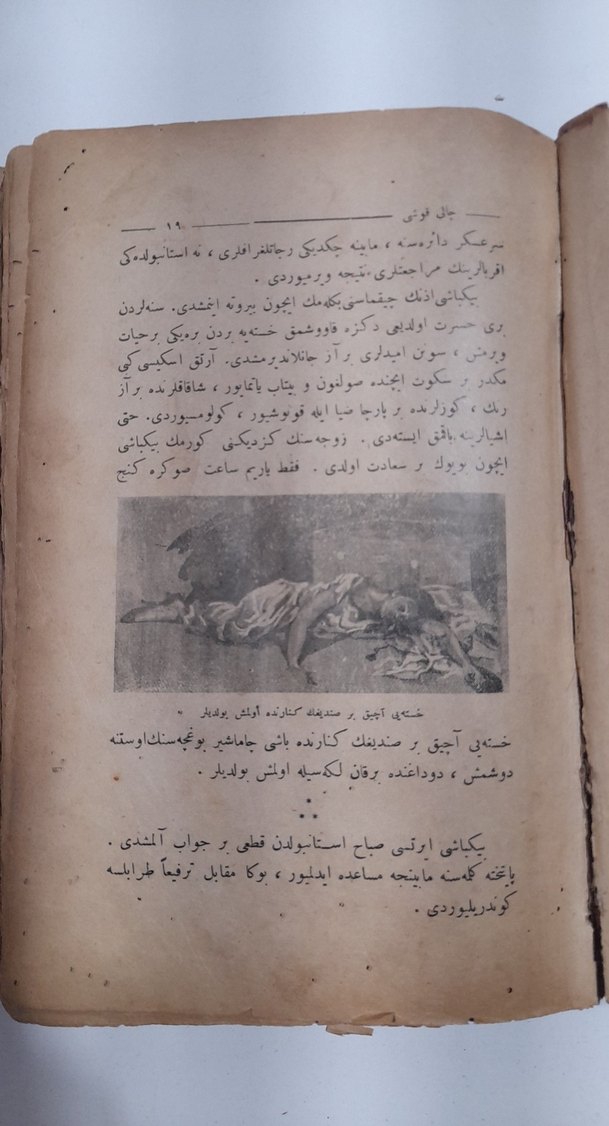 چالی قوشی ١٩
سر عسكر دائره‌سنه ، مابينه چكديكی رجا تلغرافلری ، نه استانبولده‌كی
اقربالرينك مراجعتلری نتيجه ويرميوردی .
بيكباشی اذنك چيقماسنی بكله‌مك ايچون بيروته اينمشدی. سنه‌لردن
بری حسرت اولديغی دكزه قاووشمق خسته‌يه بردن بره‌يكی بر حيات
ويرمش ، سونن اميدلری بر آز جانلانديرمشدی. آرتق اسكيسی كی
مكدر بر سكوت ايچنده صولغون و بيتاب ياتمايور ، شاقاقلرنده بر آز
رنك ، كوزلرنده بر پارچا ضيا ايله قونوشيور ، كولومسيوردی. حتی
اشيالرينه باقمق ايسته‌دی . زوجه‌سنك كزديكنی كورمك بيكباشی
ايچون بويوك بر سعادت اولدی . فقط ياريم ساعت صوكره كنج
خسته‌يی آچيق بر صنديغك كنارنده اولمش بولديلر
خسته‌يی آچيق بر صنديغك كنارنده باشی چاماشير بوغچه‌سنك اوستنه
دوشمش ، دوداغنده بر قان لكه‌سيله اولمش بولديلر .
*
* *
بيكباشی ايرتسی صباح استانبولدن قطعی بر جواب آلمشدی .
پايتخته كلمه‌سنه مابينجه مساعده ايدلميور ، بوكا مقابل ترفيعاً طرابلسه
كوندريليوردی .